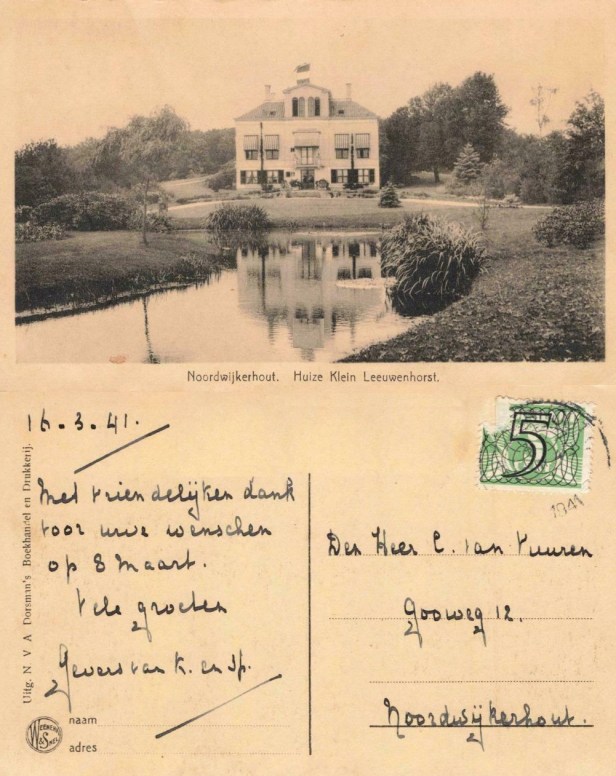 Noordwijkerhout. Huize Klein Leeuwenhorst.
16-3-41.
Met vriendelijken dank
voor uwe wenschen
op 8 Maart.
Vele groeten
Gevers van K. en Sp.
naam
adres
Uitg. N V A Dorsman's Boekhandel en Drukkerij.
5
1941
Den Heer C. van Vuuren
Gooweg 12.
Noordwijkerhout.